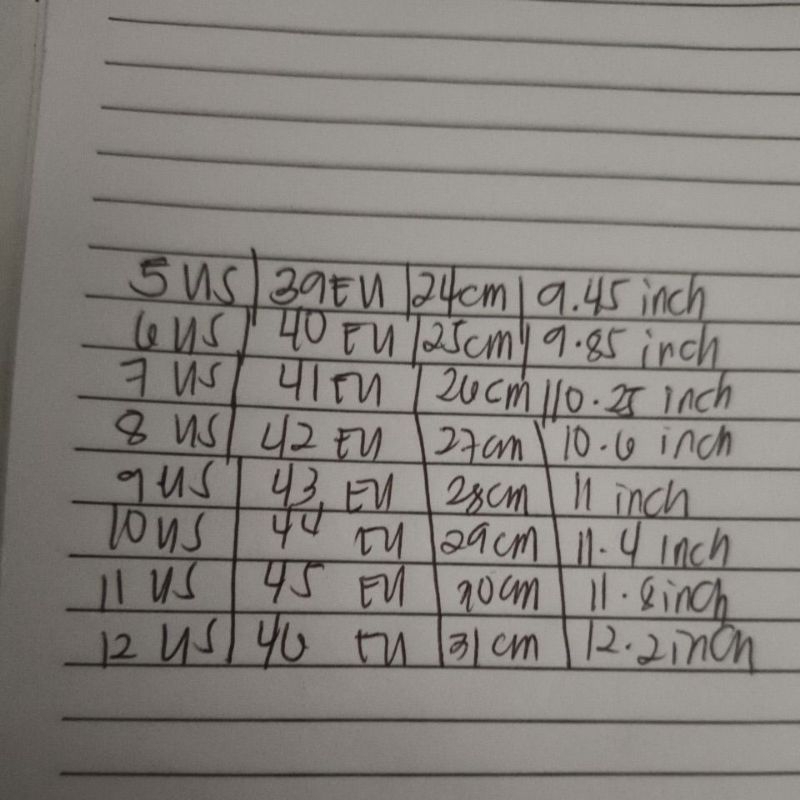 5 US | 39 EU | 24cm | 9.45 inch
6 US | 40 EU | 25cm | 9.85 inch
7 US | 41 EU | 26cm | 10.25 inch
8 US | 42 EU | 27cm | 10.6 inch
9 US | 43 EU | 28cm | 11 inch
10 US | 44 EU | 29cm | 11.4 inch
11 US | 45 EU | 30cm | 11.8 inch
12 US | 46 EU | 31cm | 12.2 inch